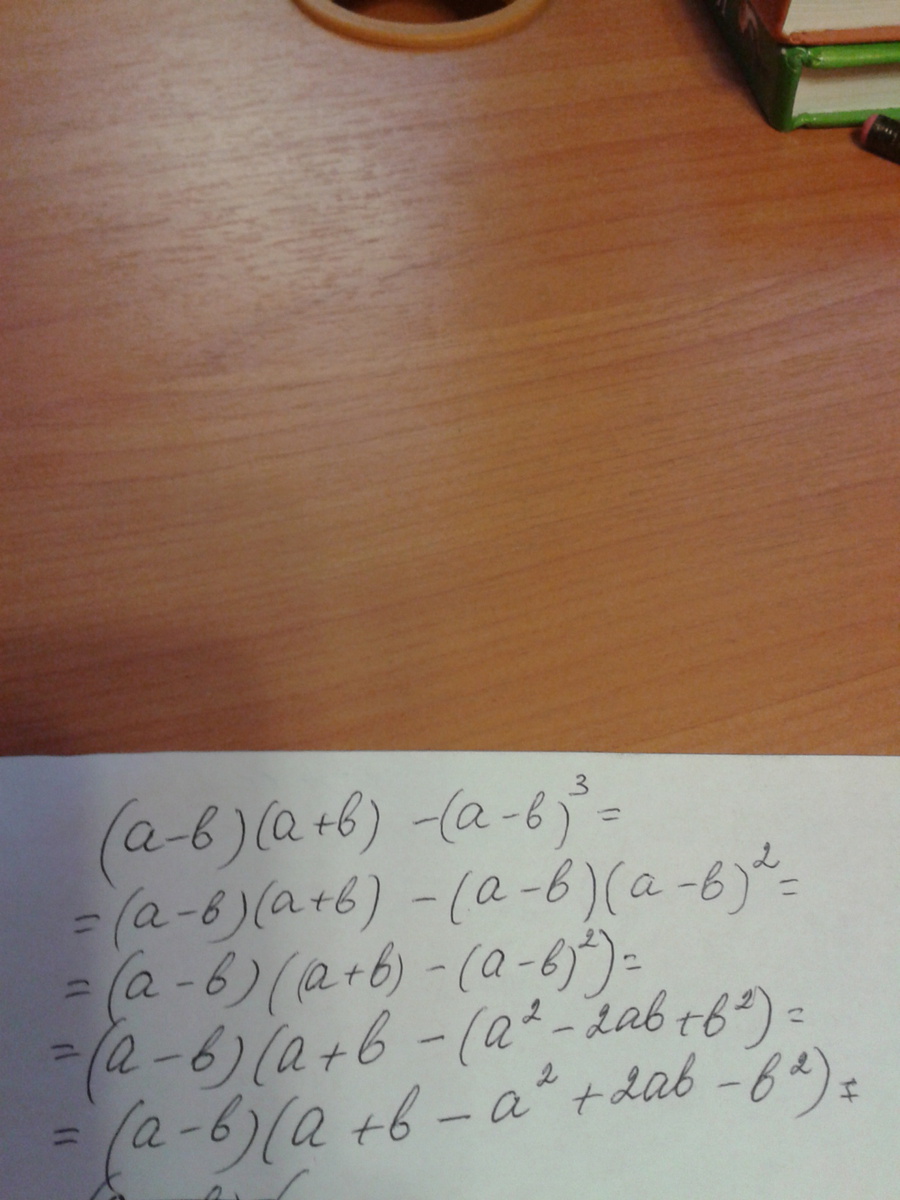 (a-b)(a+b) -(a-b)³=
=(a-b)(a+b) -(a-b)(a-b)²=
=(a-b)((a+b) -(a-b)²)=
=(a-b)(a+b -(a²-2ab+b²)=
=(a-b)(a+b-a²+2ab-b²)=